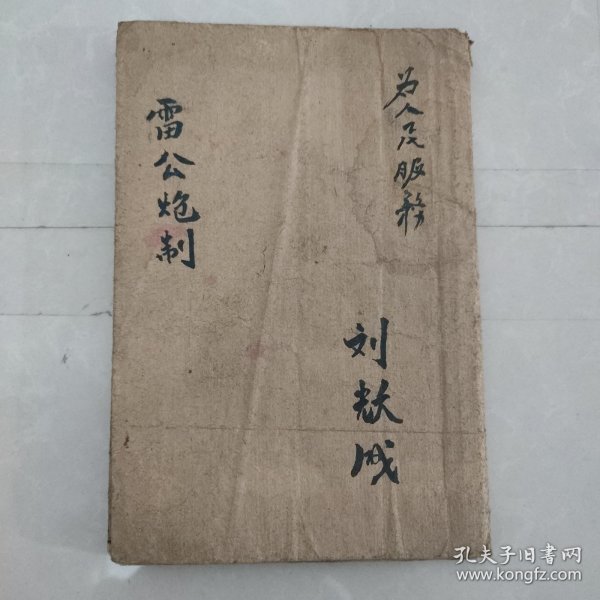 为人民服務
雷公炮制
刘
成
孔夫子旧书网
www.kongfz.com